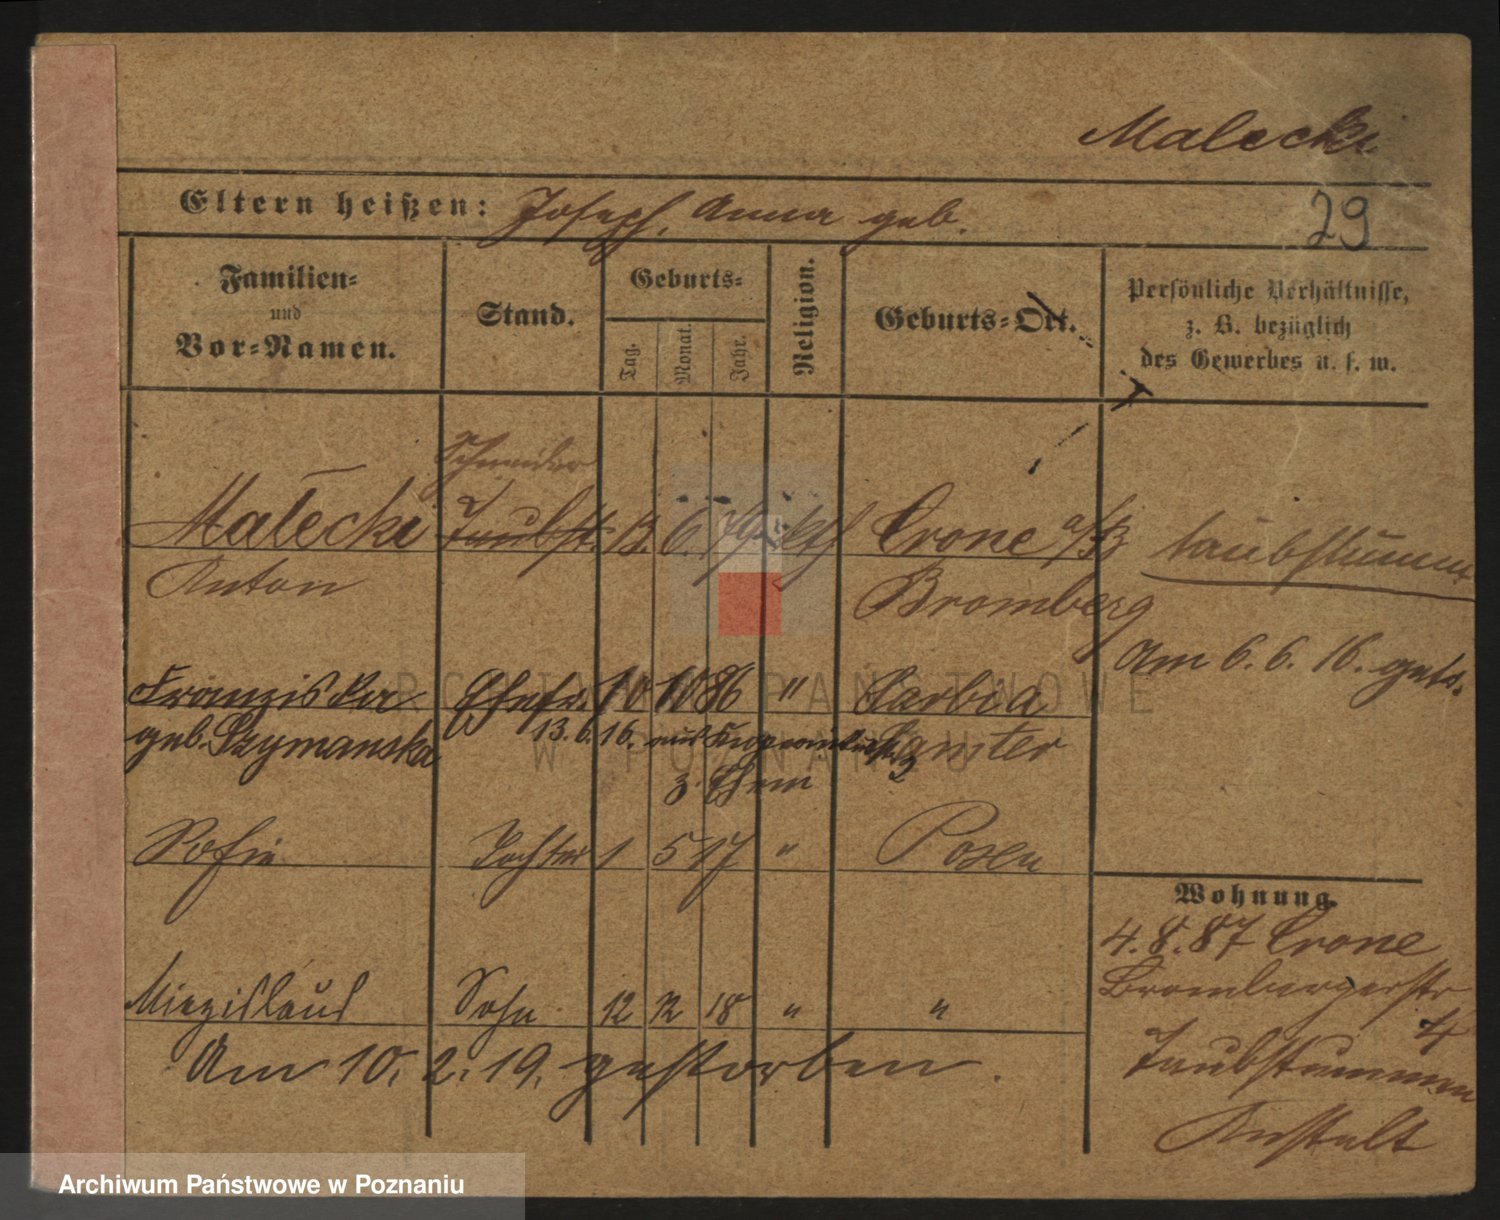 Malecki
Eltern heißen: Joseph, Anna geb.
29
Familien- und Vor-Namen.
Stand.
Geburts-
Tag.
Monat.
Jahr.
Religion.
Geburts-Ort.
Persönliche Verhältnisse,
z. B. bezüglich
des Gewerbes u. s. w.
Schneider
Malecki Taubst. 13. 6. 79 kth Crone a/B taubstumm
Anton Bromberg
Am 6. 6. 16. getr.
Franziska Ehefr. 10 10 86 " Sarbia
geb. Szymanska 13. 6. 16. aus Samter
z. Ehem
Sofie Tochter 1 5 17 " Posen
Wohnung.
4. 8. 87 Crone
Brombergerstr
4
Miezislaus Sohn 12 12 18 " "
Am 10. 2. 19. gestorben.
Taubstummen
Anstalt
ARCHIWUM PAŃSTWOWE
W POZNANIU
Archiwum Państwowe w Poznaniu